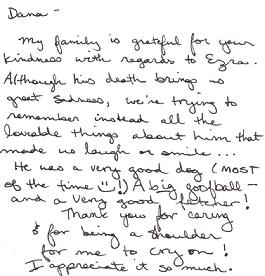 Dana -
My family is grateful for your
kindness with regards to Ezra.
Although his death brings us
great sadness, we're trying to
remember instead all the
loveable things about him that
made us laugh or smile...
He was a very good dog (MOST
of the time !!) A big goofball -
and a very good fetcher!
Thank you for caring
& for being a shoulder
for me to cry on!
I appreciate it so much.